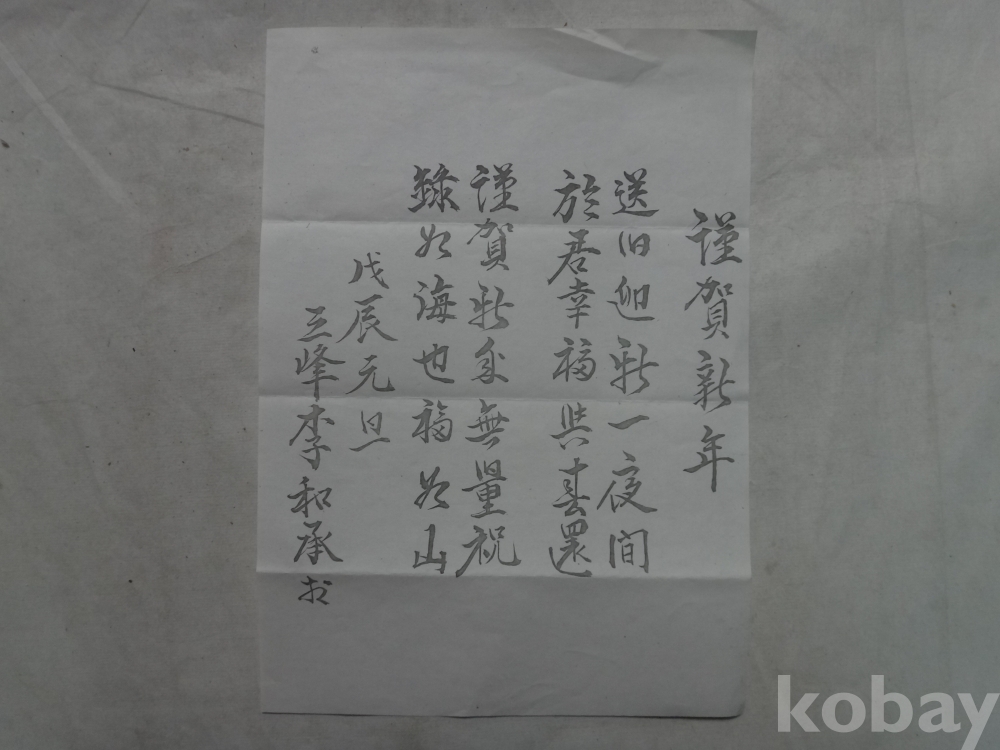 謹賀新年
送旧迎新一夜間
於君幸福與還
謹賀新秊無量祝
如海也福如山
戊辰元旦
峰李和承
kobay